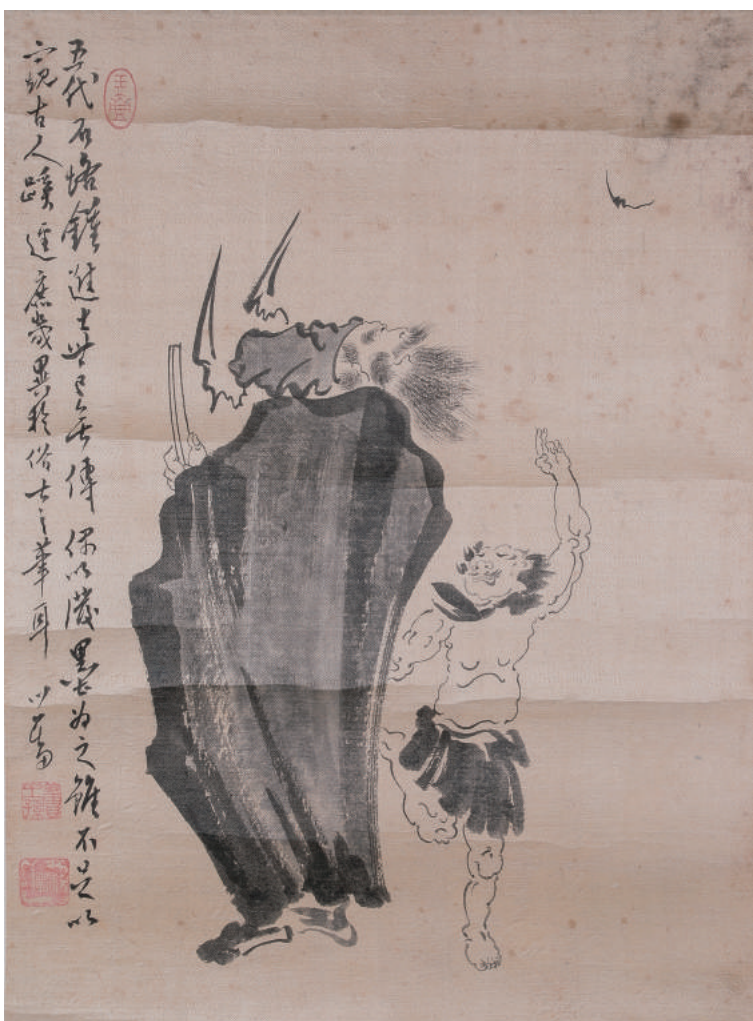 五代石恪鍾進士世已無傳偶以潑墨為之雖不足以
窺古人蹊逕庶幾異於俗士之筆耳 心畬